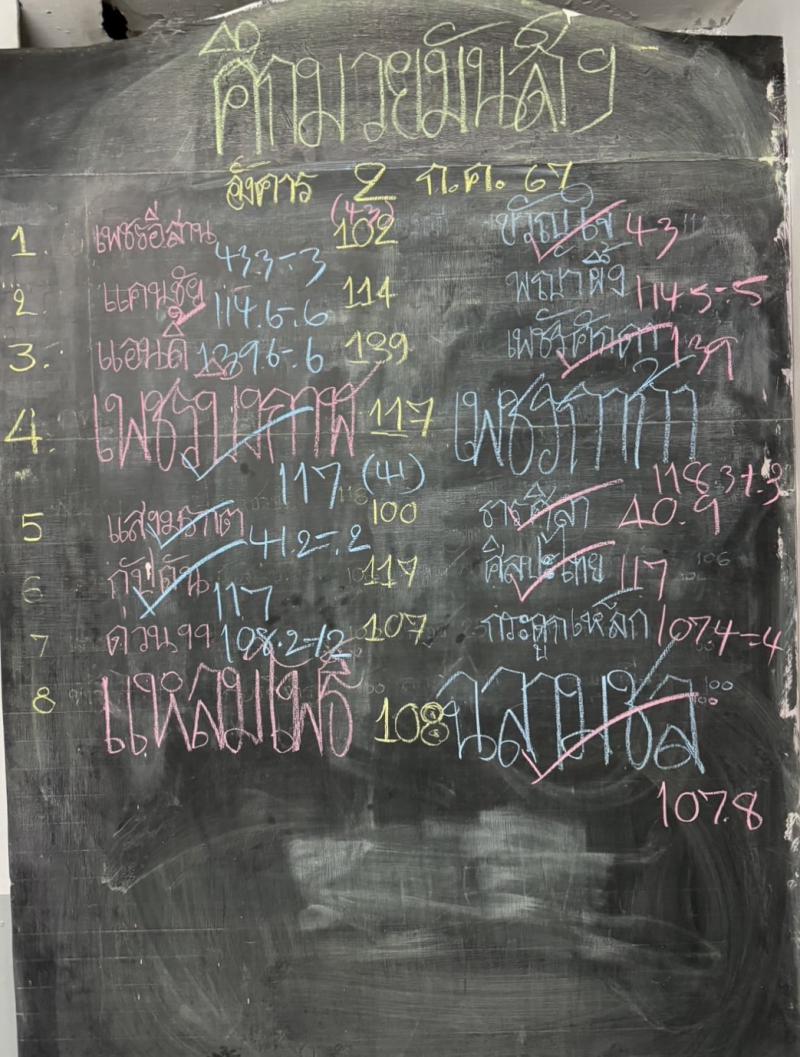 ศึกมวยมันส์ๆ
อังคาร 2 ก.ค. 67
1. เพชรอีสาน 433-.3 (43) 102 ขวัญใจ 43
2. แดนชัย 114.6-.6 114 พญาผึ้ง 114.5-.5
3. แอนดี้ 139.6-.6 139 เพชรศักดา 139
4. เพชร 117 เพชรกาก้า
117 (41) 118.3+.3
5 แสงมรกต 41.2-.2 100 ราศีสิลา 40.9
6 กัปตัน 117 117 ศิลปะไทย 117
7 ดวน99 108.2-1.2 107 กระดูกเหล็ก 107.4-.4
8 แหลมโพธิ์ 108 ฉลามชล
107.8